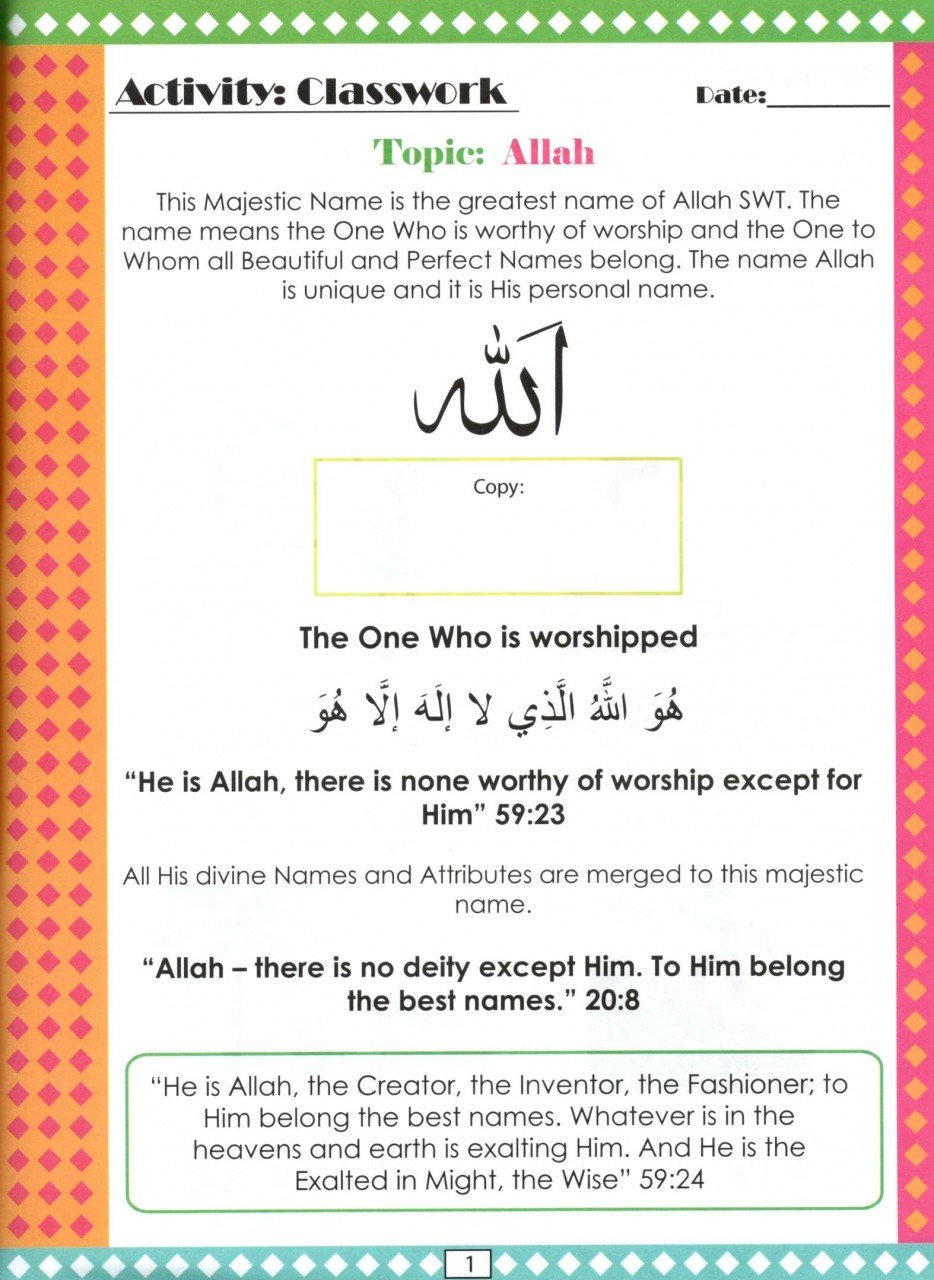 Activity: Classwork
Date:__________
Topic: Allah
This Majestic Name is the greatest name of Allah SWT. The
name means the One Who is worthy of worship and the One to
Whom all Beautiful and Perfect Names belong. The name Allah
is unique and it is His personal name.
اَللّٰه
Copy:
The One Who is worshipped
هُوَ اللَّهُ الَّذِي لا إِلَهَ إِلَّا هُوَ
“He is Allah, there is none worthy of worship except for
Him” 59:23
All His divine Names and Attributes are merged to this majestic
name.
“Allah – there is no deity except Him. To Him belong
the best names.” 20:8
“He is Allah, the Creator, the Inventor, the Fashioner; to
Him belong the best names. Whatever is in the
heavens and earth is exalting Him. And He is the
Exalted in Might, the Wise” 59:24
1